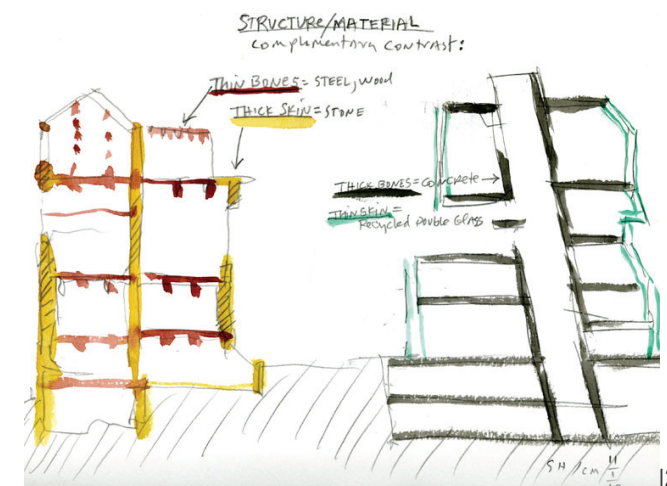 STRUCTURE/MATERIAL
complementary contrast:
THIN BONES = STEEL, WOOD
THICK SKIN = STONE
THICK BONES = CONCRETE
THIN SKIN =
Recycled Double Glass